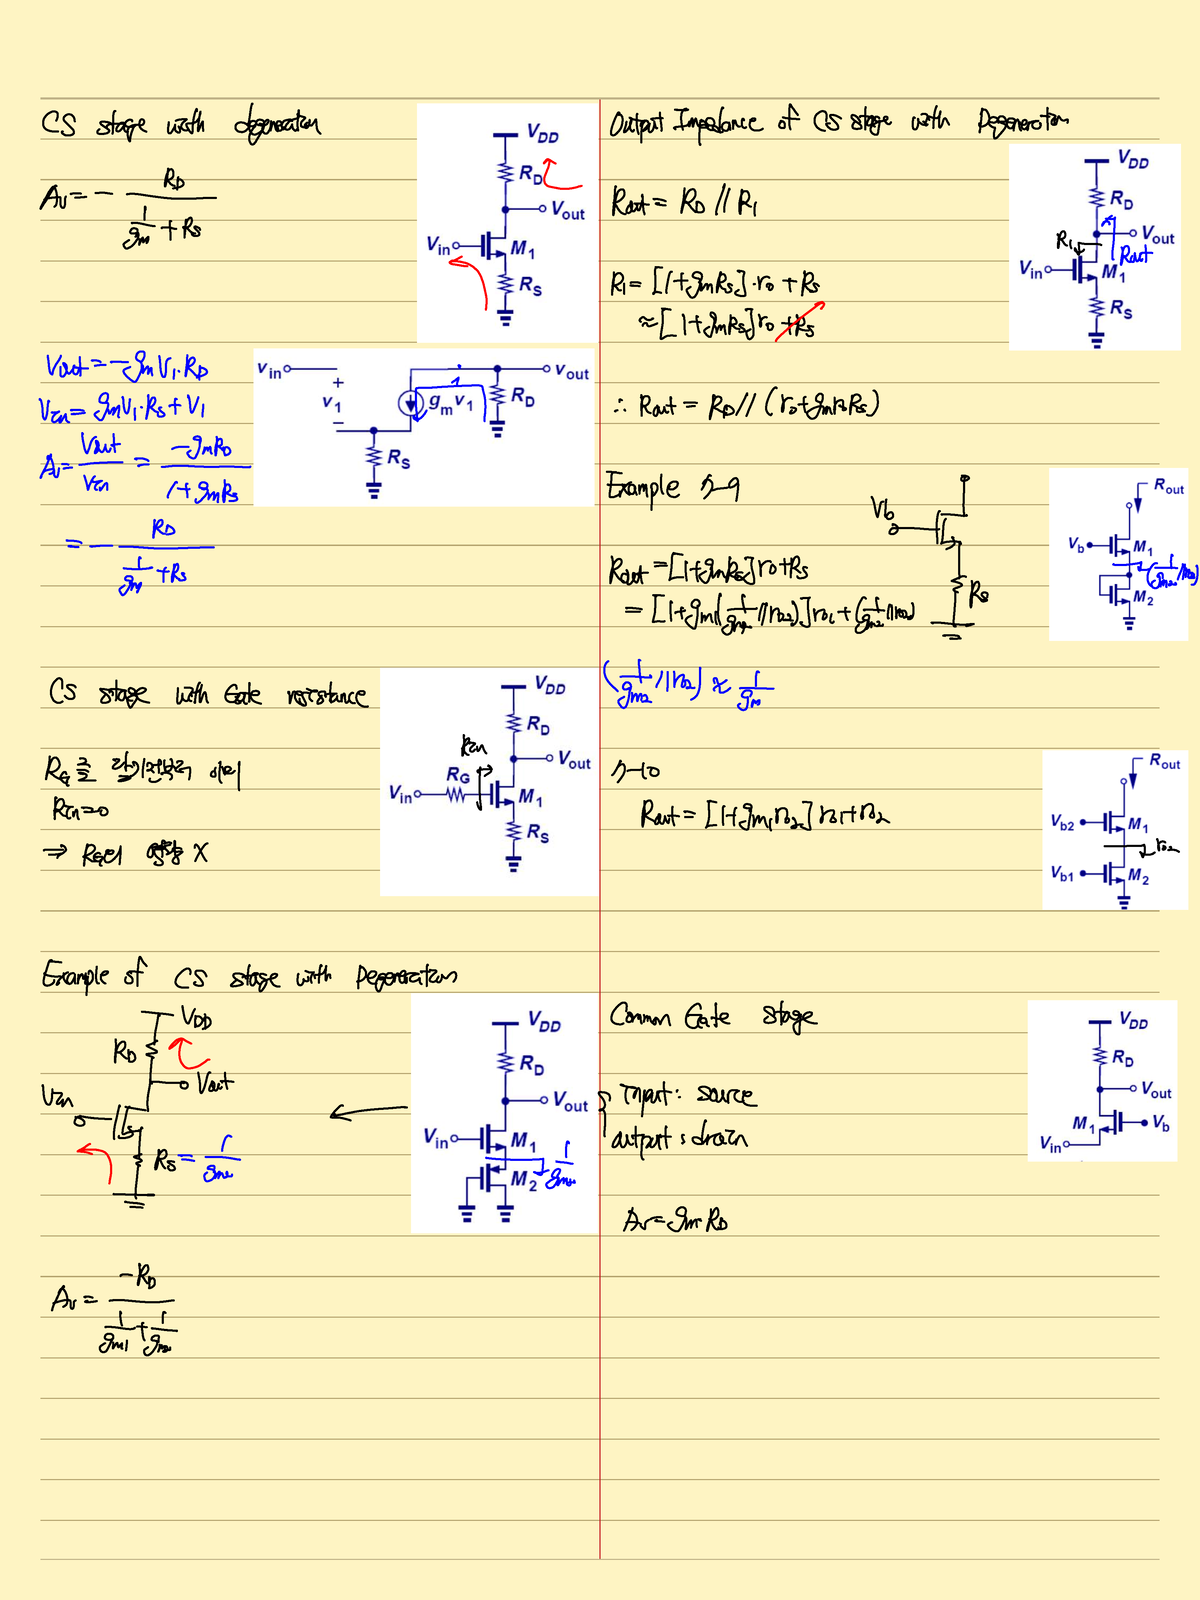 CS stage with degeneration
Av = - RD / (1/gm + RS)
VDD
RD
Vout
Vin
M1
RS
Vout = -gmV1·RD
Vin = gmV1·RS + V1
Av = Vout/Vin = -gmRD / (1+gmRS)
= - RD / (1/gm + RS)
vin
+
v1
−
gmv1
vout
RD
RS
CS stage with Gate resistance
RG
Rin=0
⇒ RG X
VDD
RD
Vout
Rin
RG
Vin
M1
RS
Example of CS stage with Degeneration
VDD
RD
Vout
Vin
RS = 1/gm2
VDD
RD
Vout
Vin
M1
M2
1/gm2
Av = -RD / (1/gm1 + 1/gm2)
Output Impedance of CS stage with Degeneration
Rout = RD // R1
R1 = [1+gmRS]·ro + RS
≈ [1+gmRS]ro +RS
∴ Rout = RD // (ro+gmroRS)
VDD
RD
R1
Vout
Rout
Vin
M1
RS
Example 7-9
Rout = [1+gmRS]ro+RS
= [1+gm1(1/gm2//ro2)]ro1+(1/gm2//ro2)
Vb
RS
(1/gm2//ro2) ≈ 1/gm
Rout
Vb
M1
(1/gm2//ro2)
M2
7-10
Rout = [1+gm1ro2]ro1+ro2
Rout
Vb2
M1
ro2
Vb1
M2
Common Gate stage
input: source
output: drain
Av = gmRD
VDD
RD
Vout
M1
Vb
Vin